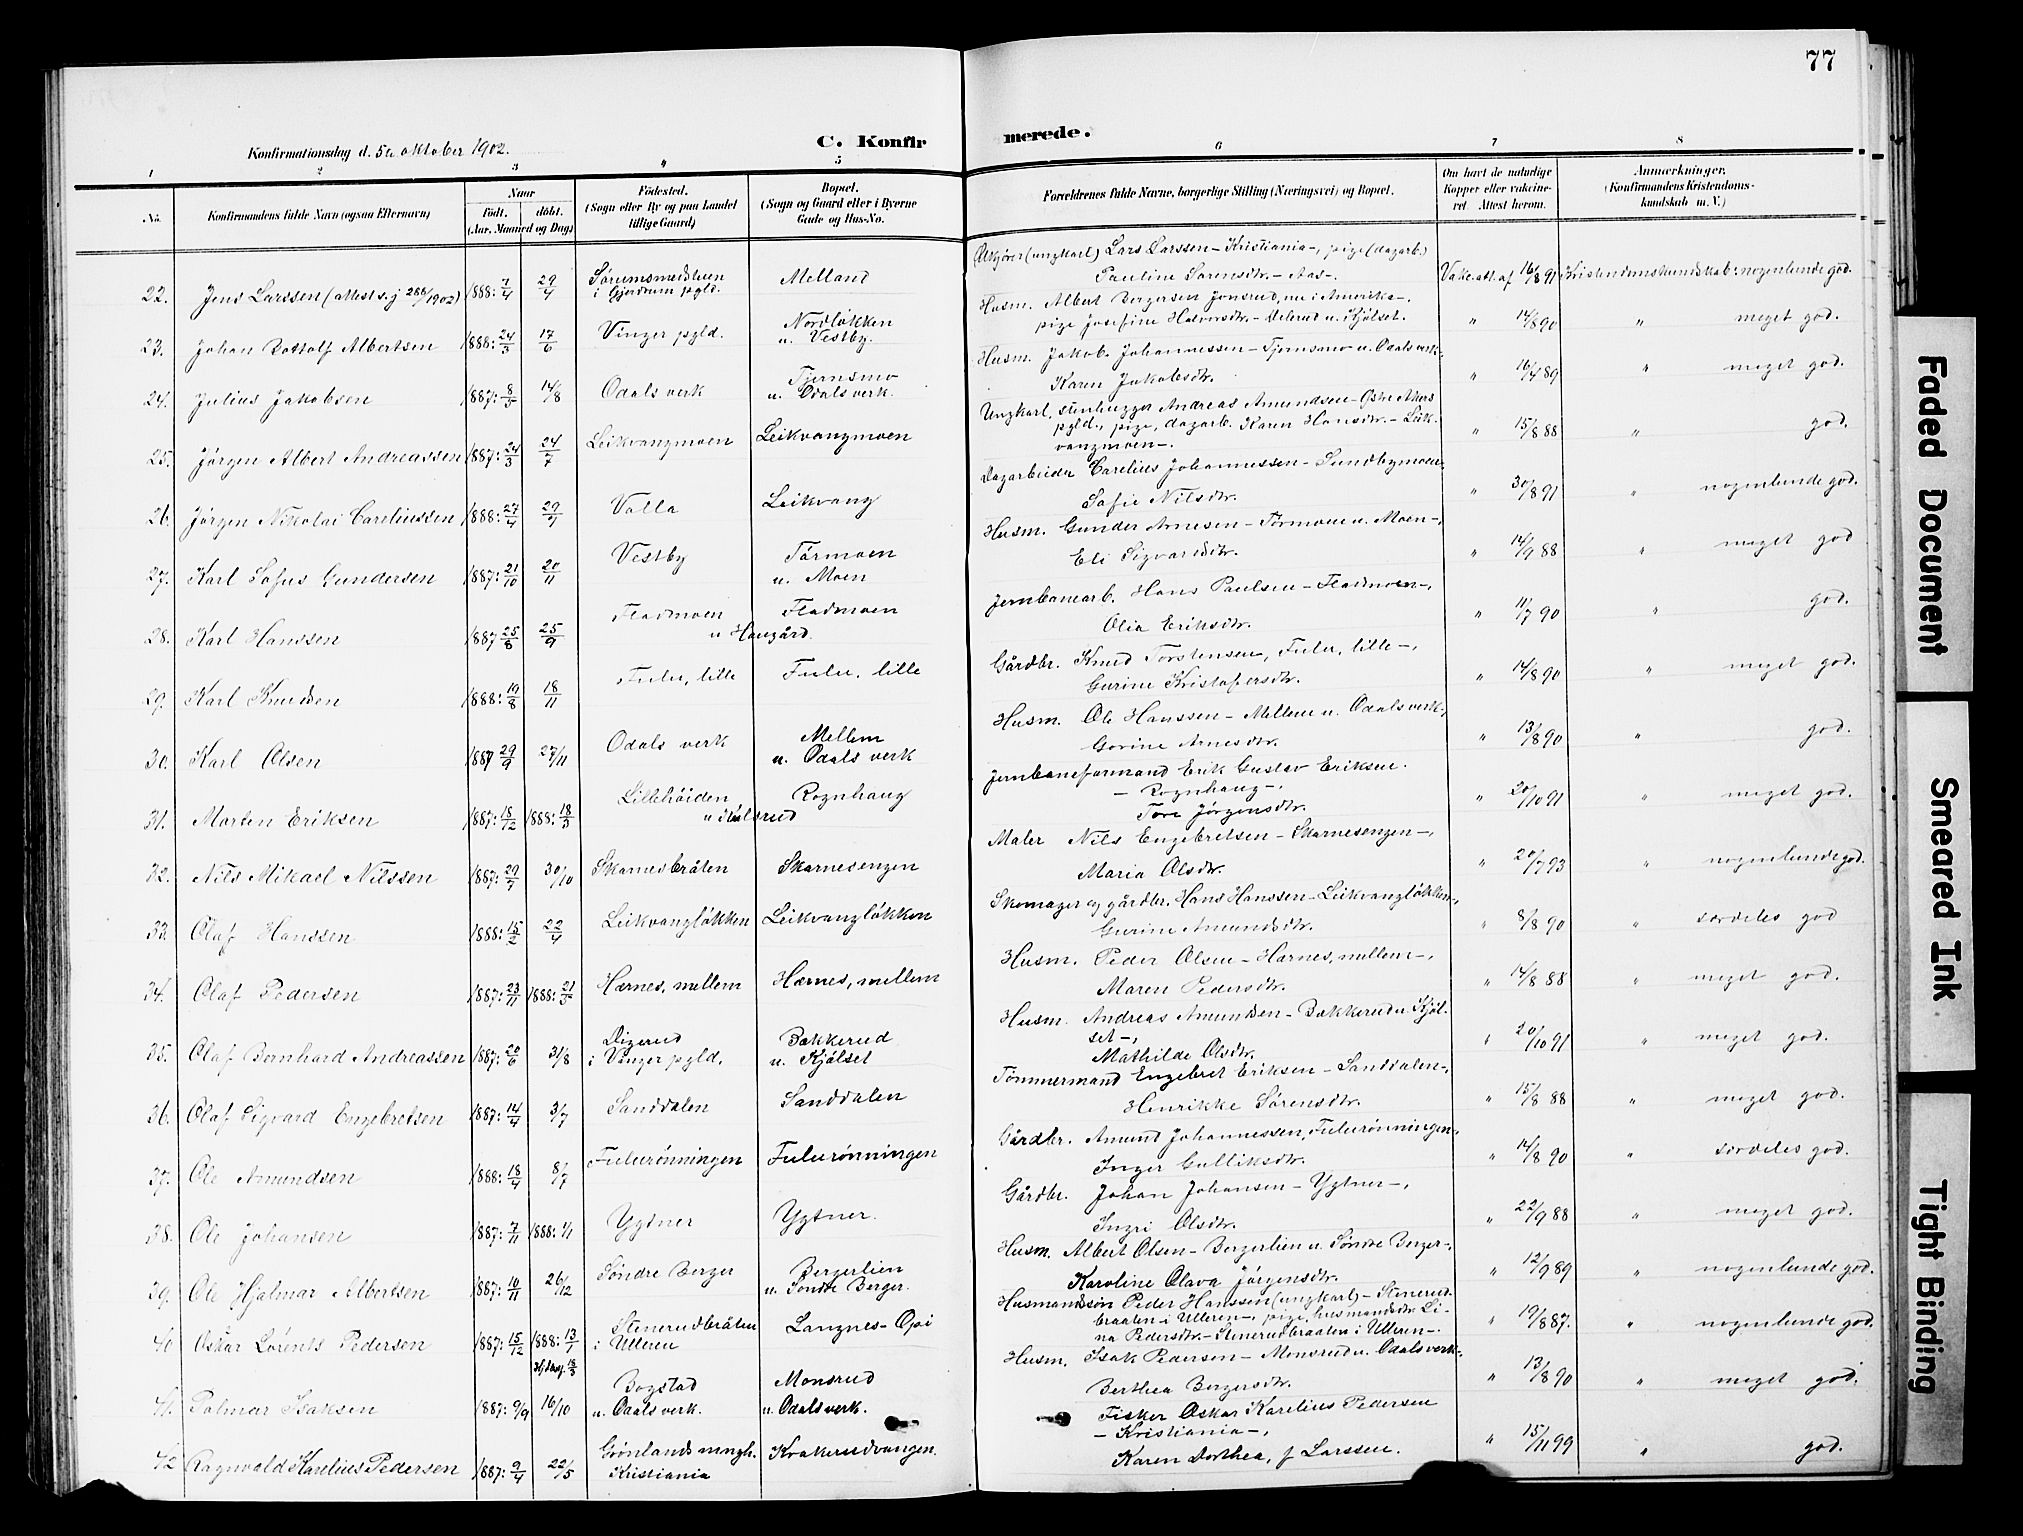 77
Konfirmationsdag d. 5te oktober 1902.
C. Konfir merede.
1 2 3 4 5 6 7 8
No.
Konfirmandens fulde Navn (ogsaa Efternavn)
Naar
født. døbt.
(Aar, Maaned og Dag)
Fødested.
(Sogn eller By og paa Landet
tillige Gaard)
Bopæl.
(Sogn og Gaard eller i Byerne
Gade og Hus-No.
Forældrenes fulde Navne, borgerlige Stilling (Næringsvei) og Bopæl.
Om havt de naturlige
Kopper eller vakcine-
ret. Attest herom.
Anmærkninger.
(Konfirmandens Kristendoms-
kundskab m. V.)
(ungkarl) Lars Larssen – Kristiania –, pige (dagarb.)
22. Jens Larssen 1888: 7/4 29/4 i Gjerdrum pgld. Melland Pauline Sørensdtr. – Aas –. Vakc. att. af 16/8 91 Kristendomskundskab: nogenlunde god.
Husm. Albert Bergersen Jonsrud, nu i Amerika –,
23. Johan Albertsen 1888: 24/3 17/6 Vinger pgld. Nordløkken u. Vestby. pige Josefine u. Kjølset. " 14/8 90 " meget god.
Husm. Jakob Johannessen – Tjernsmo u. Odals verk –,
24. Julius Jakobsen 1887: 8/5 14/8 Odals verk Tjernsmo u. Odals verk. Karen Jakobsdtr. " 16/4 89 " meget god.
Ungkarl, stenhugger Andreas Amundsen – Østre Akers
pgld., pige, dagarb. Karen Hansdtr. – Leik-
25. Jørgen Albert Andreassen 1887: 24/3 24/7 Leikvangmoen Leikvangmoen vangmoen –. " 15/8 88 " god.
Dagarbeider Carelius Johannessen – Sundbymoen –,
26. Jørgen Nikolai Careliussen 1888: 27/4 29/7 Valla Leikvang Sofie Nilsdtr. " 30/8 91 " nogenlunde god.
Husm. Gunder Arnesen – Tørmoen u. Moen –,
27. Karl Sofus Gundersen 1887: 21/10 20/11 Vestby Tørmoen u. Moen Eli Sigvardsdtr. " 14/9 88 " meget god
Jernbanearb. Hans Paulsen – Fladmoen –,
28. Karl Hanssen 1887 25/8 25/9 Fladmoen Fladmoen u Haugård. Olia Eriksdtr. " 11/7 90 " god.
Gårdbr. Knud Torstensen, Fulu, lille –,
29. Karl Knudsen 1888: 19/8 18/11 Fulu, lille Fulu, lille Gurine Kristofersdtr. " 14/8 90 " meget god.
Husm. Ole Hanssen – Mellem u. Odals verk –,
30. Karl Olsen 1887 29/9 27/11 Odals verk Mellem u. Odals verk Gorine Arnesdtr. " 13/8 90 " god.
Jernbaneformand Erik Gustav Eriksen.
– Rognhaug –,
31. Morten Eriksen 1887: 18/12 1888: 18/3 Lillehøiden Rognhaug u Kulsrud Tore Jørgensdtr. " 20/10 91 " meget god.
Maler Nils Engebretsen – Skarnesengen –,
32. Nils Mikael Nilssen 1887: 29/7 30/10 Skarnesbråten Skarnesengen Maria Olsdtr. " 20/7 93 " nogenlunde god.
Skomager og gårdbr. Hans Hanssen – Leikvangløkken –,
33. Olaf Hanssen 1888: 15/2 22/4 Leikvangløkken Leikvangløkken Gurine Amundsdtr. " 8/8 90 " særdeles god
Husm. Peder Olsen – Harnes, mellem –,
34. Olaf Pedersen 1887: 23/11 1888: 21/5 Hærnes, mellem Hærnes, mellem Maren Pedersdtr. " 14/8 88 " meget god.
Husm. Andreas Amundsen – Bakkerud u. Kjøl-
set –,
35. Olaf Bernhard Andreassen 1887: 20/6 31/8 Digerud i Vinger pgld. Bakkerud u. Kjølset Mathilde Olsdtr. " 20/10 91 " meget god.
Tømmermand Engebret Eriksen – Sanddalen –,
36. Olaf Sigvard Engebretsen 1887: 14/4 3/7 Sanddalen Sanddalen Henrikke Sørensdtr. " 15/8 88 " meget god.
Gårdbr. Amund Johannessen, Fulurønningen –,
37. Ole Amundsen 1888: 18/4 8/7 Fulurønningen Fulurønningen Inger Gulliksdtr. " 14/8 90 " særdeles god.
Gårdbr. Johan Johansen – Ygtner –,
38. Ole Johansen 1887: 7/11 1888: 1/1 Ygtner Ygtner. Ingri Olsdtr. " 22/9 88 " meget god.
Husm. Albert Olsen – Bergerlien u. Søndre Berger –,
39. Ole Hjalmar Albertsen 1887: 10/11 26/12 Søndre Berger Bergerlien u. Søndre Berger. Karoline Olava Jørgensdtr. " 12/9 89 " nogenlunde god.
Husmandssøn Peder Hanssen (ungkarl) – Stenerud-
braaten i Ulleren –, pige, husmandsdtr. Li-
40 Oskar Lorents Pedersen 1887: 15/12 1888: 13/1 Stenerudbråten i Ulleren Langnes – Opi na Pedersdtr. – Stenerudbraaten i Ulleren –. " 19/8 87. " nogenlunde god.
Husm. Isak Pedersen – Monsrud u. Odals verk –,
41. Palmar Isaksen 1887: 9/9 16/10 Bogstad u. Odals verk. Monsrud u. Odals verk. Berthea Bergersdtr. " 13/8 90 " meget god.
Fisker Oskar Karelius Pedersen
– Kristiania –,
42 Ragnvald Karelius Pedersen 1887: 9/4 22/5 Grønlands mngh. Kristiania Krakerudvangen. Karen Dorthea, f Larssen. " 15/11 99 " god.
Faded Document
Smeared Ink
Tight Binding